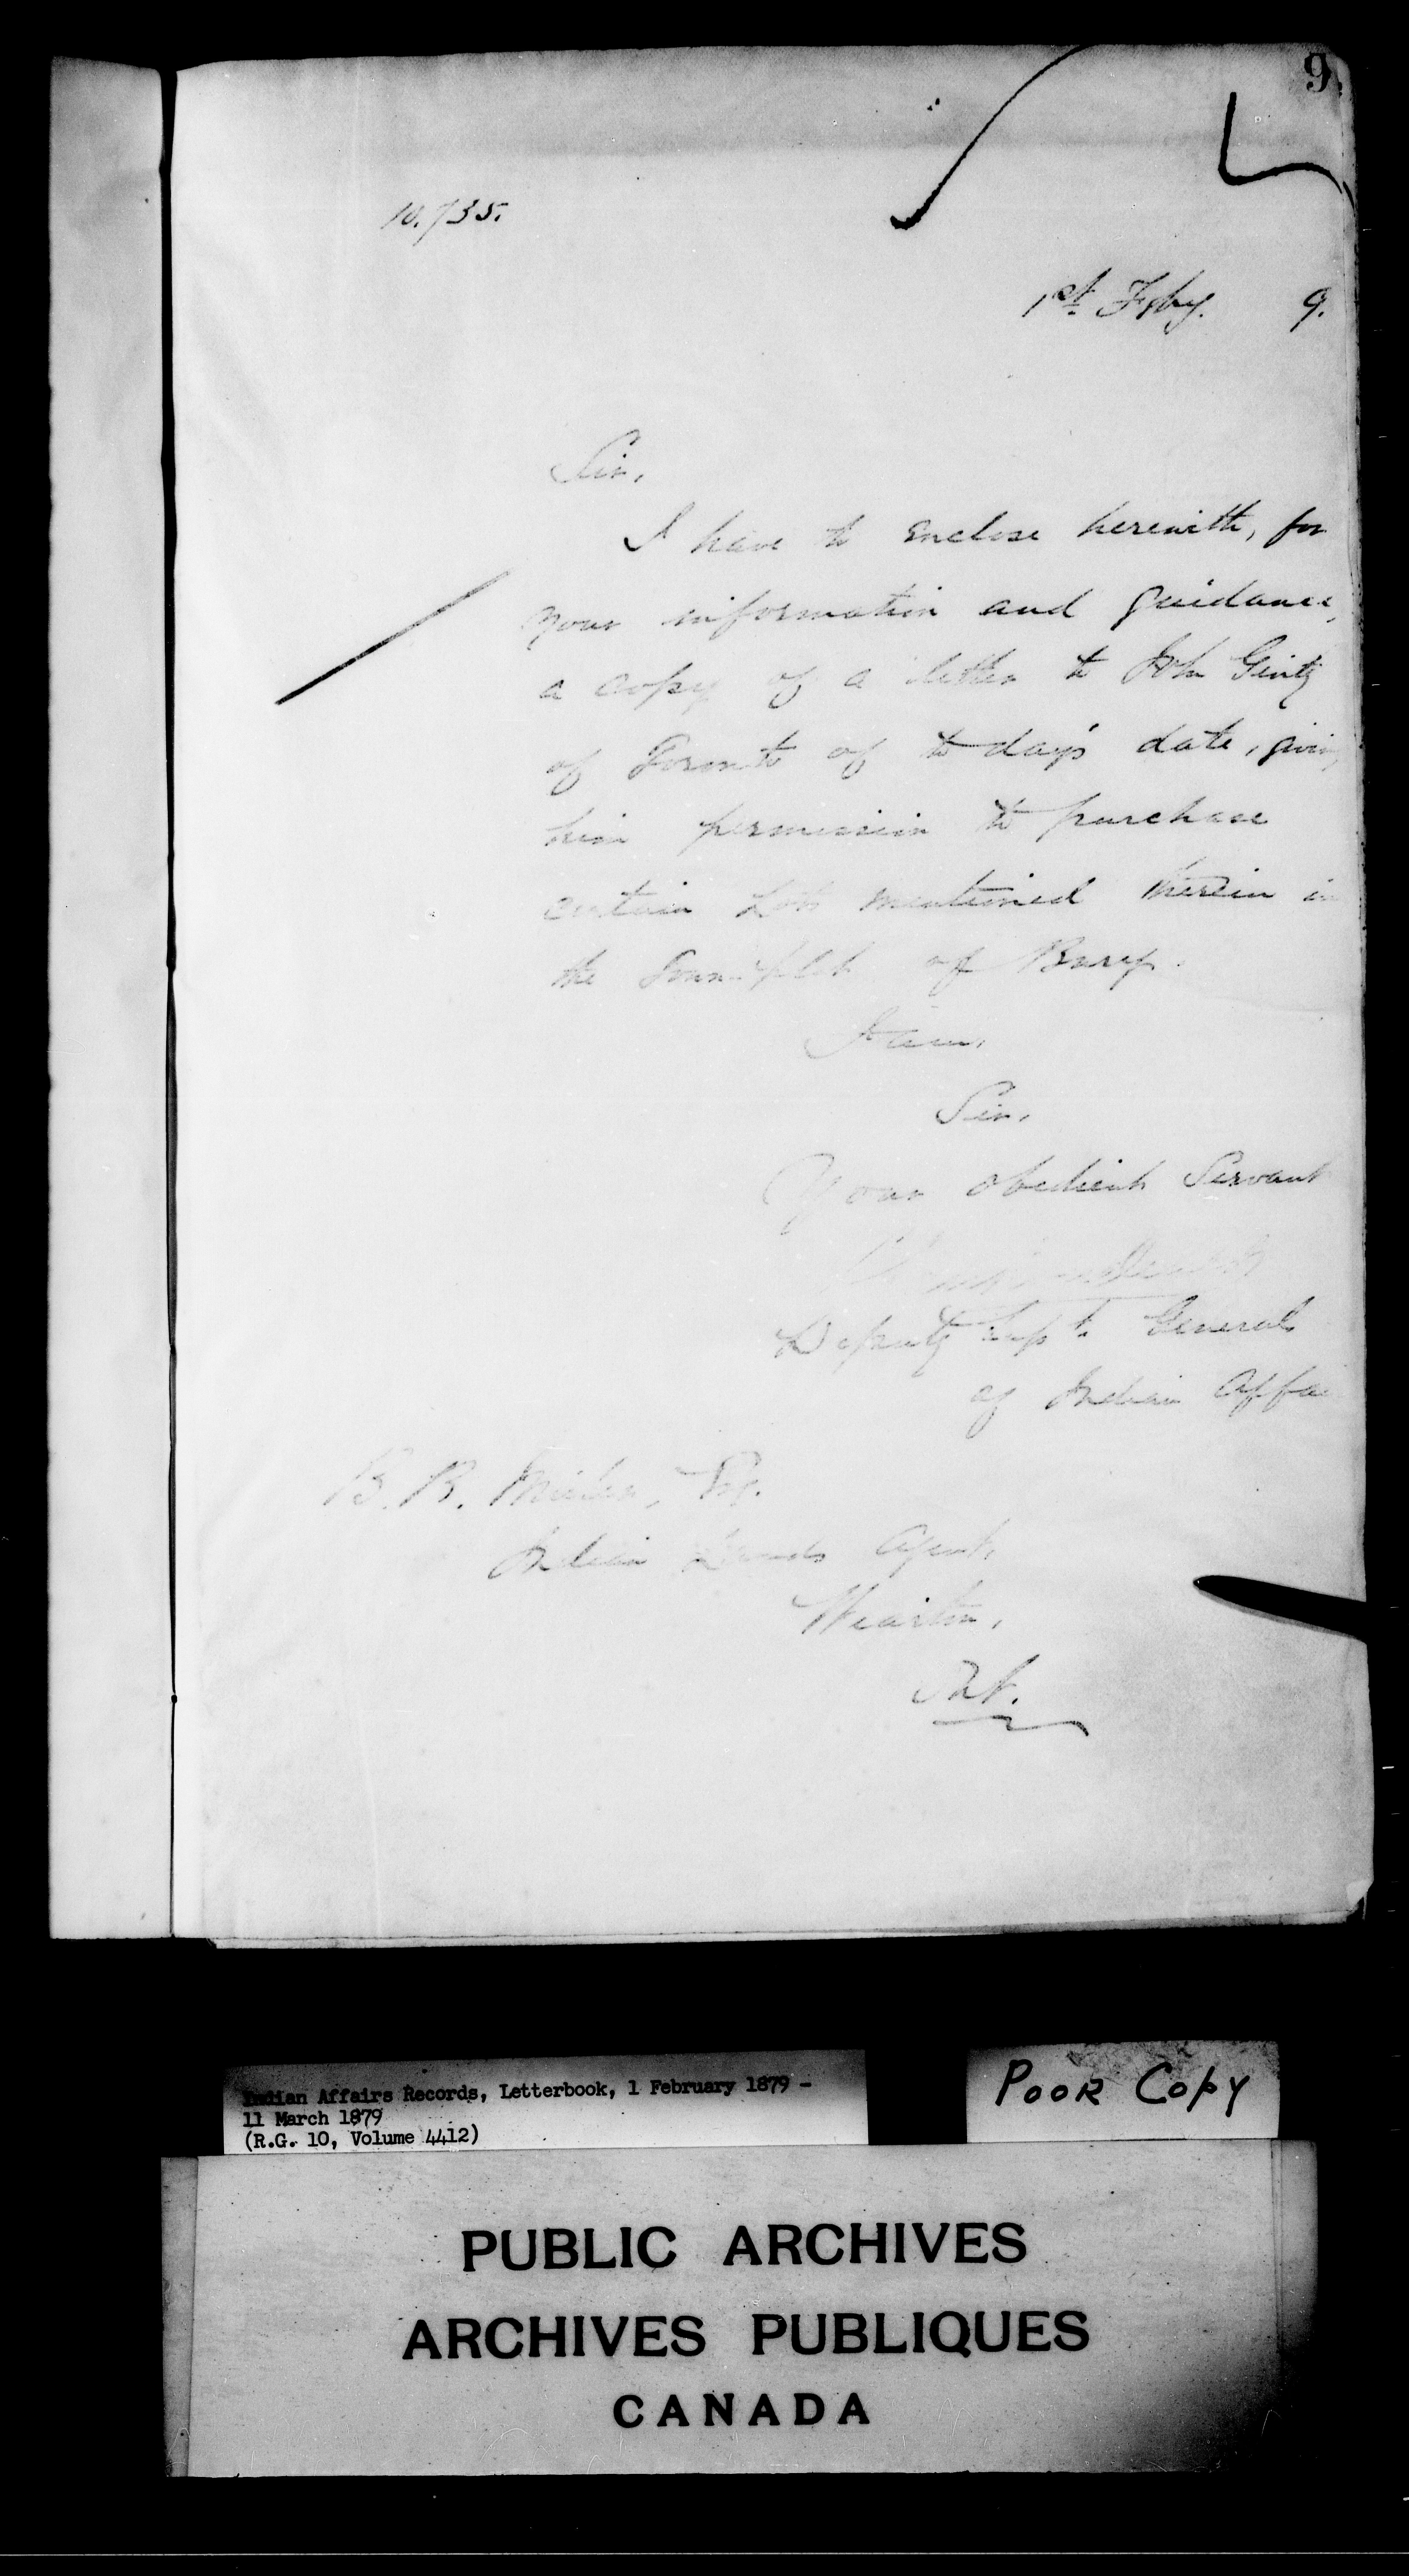 9.
10.735.
1st Feby. 9.
Sir,
I have to enclose herewith, for
your information and guidance,
a copy of a letter to John Ginty
of Toronto of to day's date, givin
him permission to purchase
certain Lots mentioned therein in
the Town plot of Bury.
I am,
Sir,
Your obedient Servant
Deputy Supt. General
of Indian Affai
B. B. Miller, Esq.
Indian Lands Agent,
Wiarton,
Ont.
Indian Affairs Records, Letterbook, 1 February 1879 -
11 March 1879
(R.G. 10, Volume 4412)
POOR COPY
PUBLIC ARCHIVES
ARCHIVES PUBLIQUES
CANADA